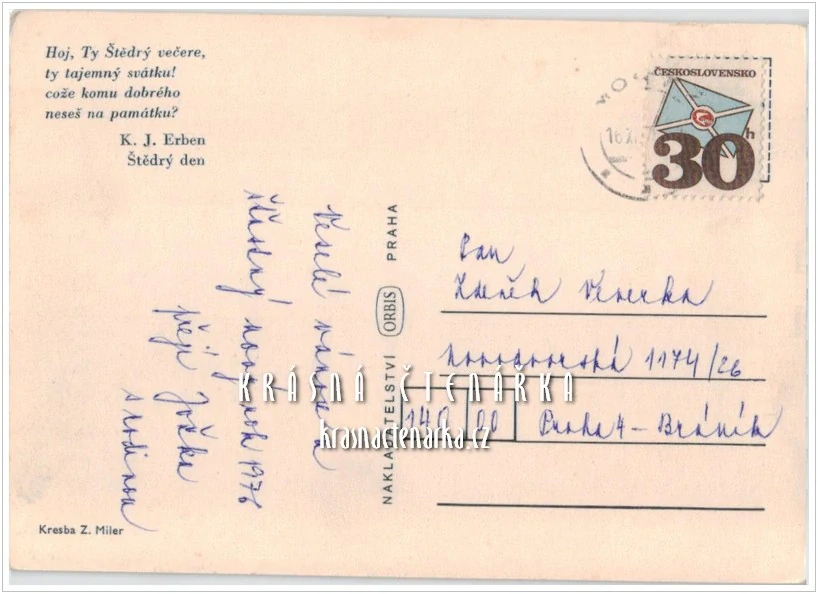 Hoj, Ty Štědrý večere,
ty tajemný svátku!
cože komu dobrého
neseš na památku?
K. J. Erben
Štědrý den
Veselé vánoce a
šťastný nový rok 1976
přejí Joška
s rodinou
Kresba Z. Miler
NAKLADATELSTVÍ ORBIS PRAHA
ČESKOSLOVENSKO
30 h
16.XI
Pan
Zdeněk Veverka
Novodvorská 1174/26
140 00 Praha 4 – Bráník
KRÁSNÁ ČTENÁŘKA
krasnactenarka.cz